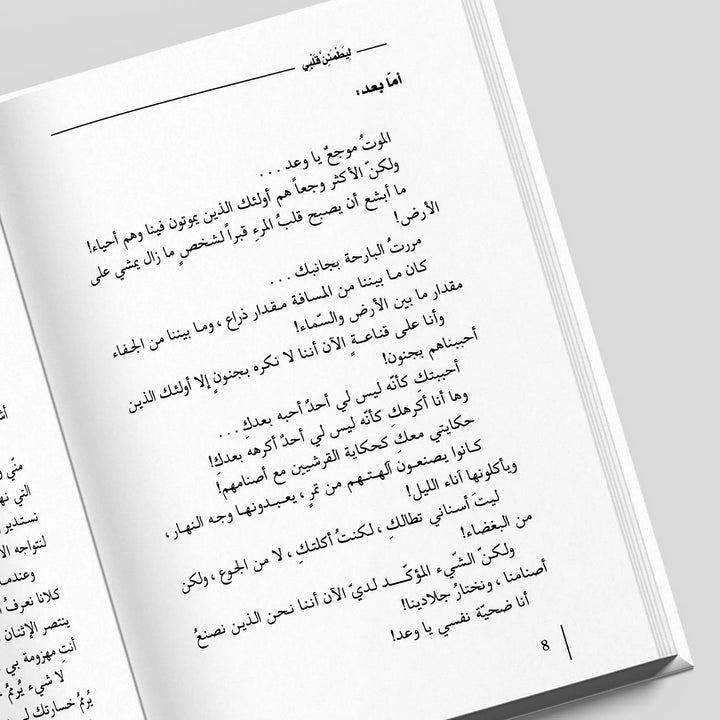 لِيَطْمَئِنَّ قَلْبِي
أمّا بعد:
الموتُ موجعٌ يا وعد ...
ولكنّ الأكثر وجعاً هم أولئك الذين يموتون فينا وهم أحياء!
ما أبشع أن يصبح قلبُ المرءِ قبراً لشخصٍ ما زال يمشي على
الأرض!
مررتُ البارحة بجانبك ...
كان ما بيننا من المسافة مقدار ذراع ، وما بيننا من الجفاء
مقدار ما بين الأرض والسّماء!
وأنا على قناعةٍ الآن أننا لا نكره بجنونٍ إلا أولئك الذين
أحببناهم بجنون!
أحببتكِ كأنّه ليس لي أحدٌ أحبه بعدكِ ...
وها أنا أكرهكِ كأنّه ليس لي أحدٌ أكرهه بعدكِ!
حكايتي معكِ كحكاية القرشيين مع أصنامهم!
كانوا يصنعون آلهتهم من تمرٍ ، يعبدونها وجه النهار ،
ويأكلونها آناء الليل!
ليتَ أسناني تطالكِ ، لكنتُ أكلتكِ ، لا من الجوع ، ولكن
من البغضاء!
ولكنّ الشّيء المؤكّد لديّ الآن أننا نحن الذين نصنعُ
أصنامنا ، ونختارُ جلادينا!
أنا ضحيّة نفسي يا وعد!
8
متّى و
التي نه
نستدير
لنتواجه الأ
وعندما
كلانا نعرفُ
ينتصر الإثنان
أنتِ مهزومة بي
لا شيء يُرممُ
يُرممُ خسارتك لـ